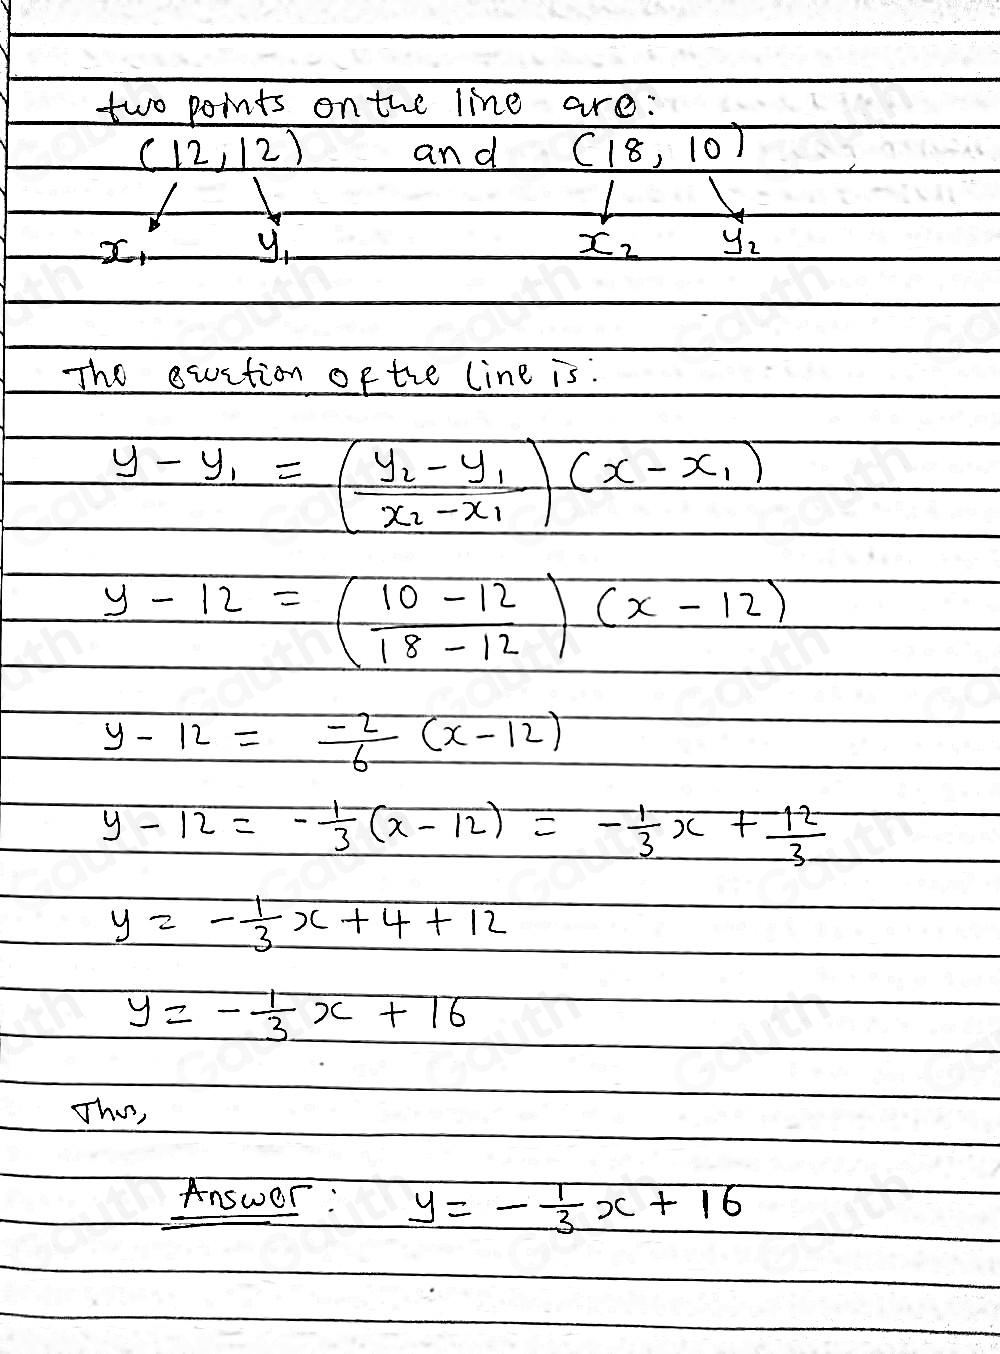 two points on the line are:
(12,12) and (18, 10)
x₁ y₁ x₂ y₂
The equation of the line is:
y - y₁ = ((y₂ - y₁)/(x₂ - x₁)) (x - x₁)
y - 12 = ((10 - 12)/(18 - 12)) (x - 12)
y - 12 = -2/6 (x - 12)
y - 12 = -1/3 (x - 12) = -1/3 x + 12/3
y = -1/3 x + 4 + 12
y = -1/3 x + 16
Thus,
Answer: y = -1/3 x + 16